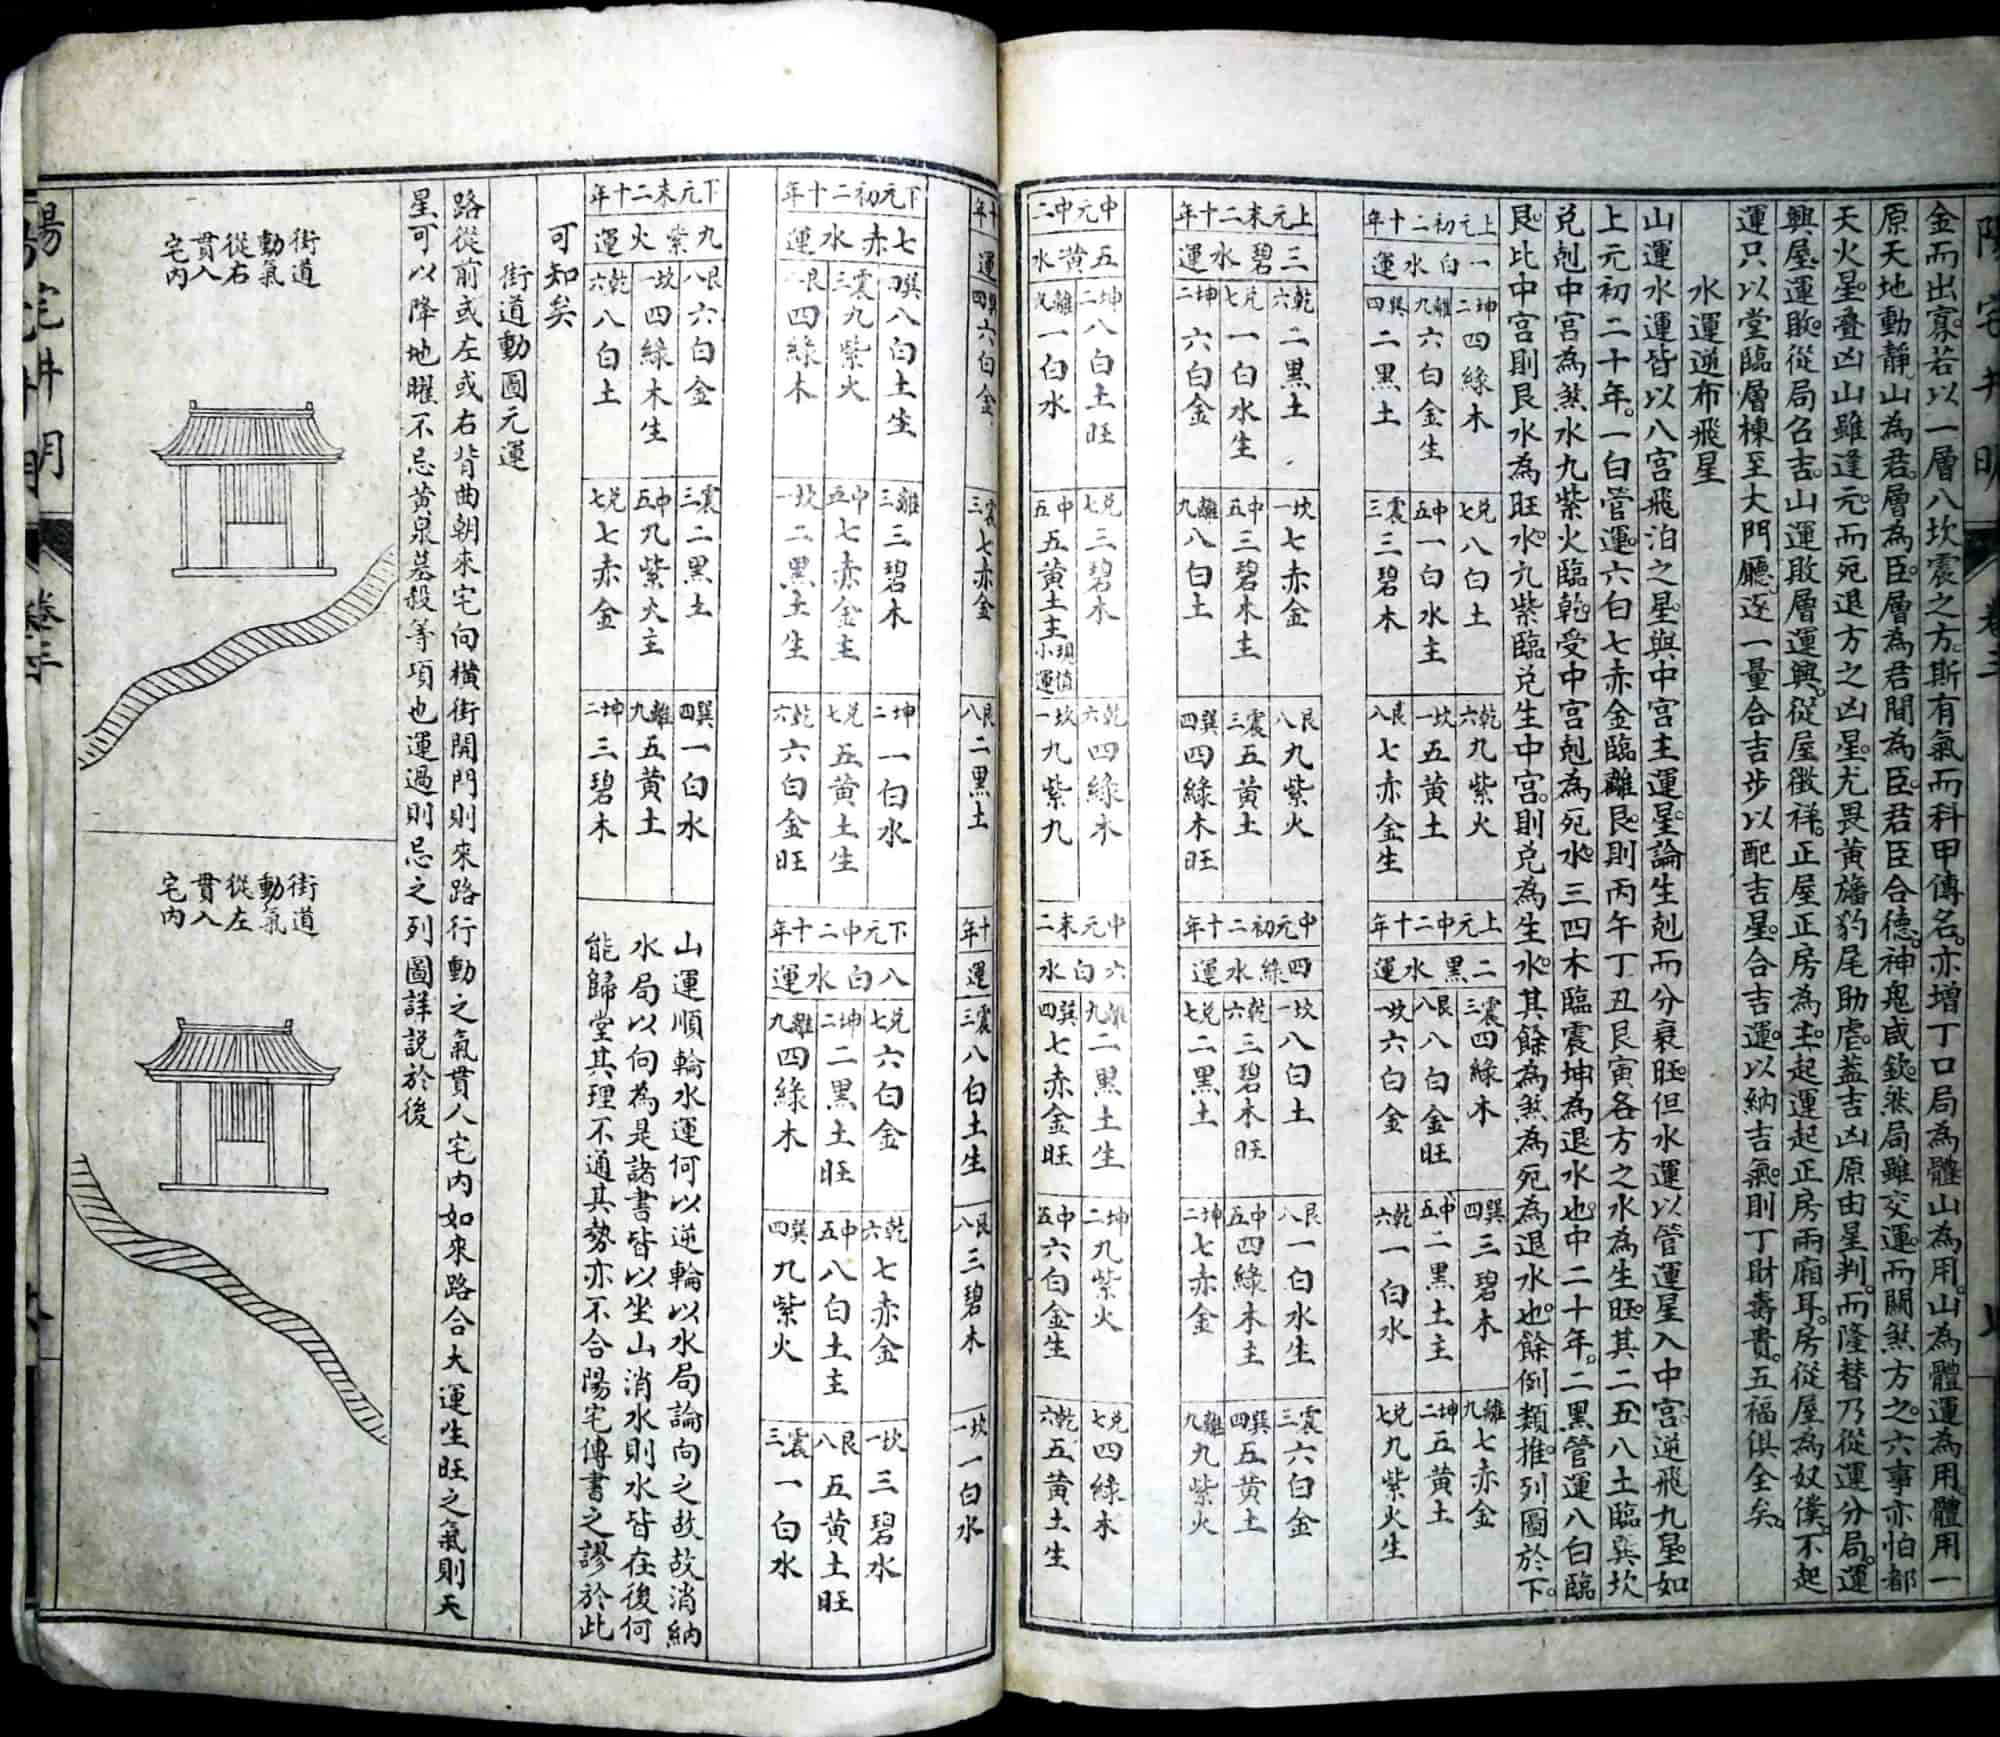 陽宅井明
卷三
金而出寡若以一層八坎震之方斯有氣而科甲傳名亦增丁口局為體山為用山為體運為用體用一
原天地動靜山為君層為臣層為君間為臣君臣合德神鬼咸欽然局雖交運而關煞方之六事亦怕都
天火星疊凶山雖逢元而死退方之凶星尤畏黃旛豹尾助虐蓋吉凶原由星判而隆替乃從運分局運
興屋運敗從局召吉山運敗層運興從屋徵祥正屋正房為主起運起正房兩廂耳房從屋為奴僕不起
運只以堂臨層棟至大門廳逐一量合吉步以配吉星合吉運以納吉氣則丁財壽貴五福俱全矣
水運逆布飛星
山運水運皆以八宮飛泊之星與中宮主運星論生剋而分衰旺但水運以管運星入中宮逆飛九星如
上元初二十年一白管運六白七赤金臨離艮則丙午丁丑艮寅各方之水為生旺其二五八土臨巽坎
兌剋中宮為煞水九紫火臨乾受中宮剋為死水三四木臨震坤為退水也中二十年二黑管運八白臨
艮比中宮則艮水為旺水九紫臨兌生中宮則兌為生水其餘為煞為死為退水也餘倒類推列圖於下
上元初二十年
一白水運
坤二四綠木
離九六白金生
巽四二黑土
兌七八白土
中五一白水主
震三三碧木
乾六九紫火
坎一五黃土
艮八七赤金生
上元中二十年
二黑水運
震三四綠木
艮八八白金旺
坎一六白金
巽四三碧木
中五二黑土主
乾六一白水
離九七赤金
坤二五黃土
兌七九紫火生
上元末二十年
三碧水運
乾六二黑土
兌七一白水生
坤二六白金
坎一七赤金
中五三碧木主
離九八白土
艮八九紫火
震三五黃土
巽四四綠木旺
中元初二十年
四綠水運
坎一八白土
乾六三碧木旺
兌七二黑土
艮八一白水生
中五四綠木主
坤二七赤金
震三六白金
巽四五黃土
離九九紫火
中元中二十年
五黃水運
坤二八白土旺
離九一白水
巽四六白金
兌七三碧木
中五五黃土主現值小運
震三七赤金
乾六四綠木
坎一九紫九
艮八二黑土
中元末二十年
六白水運
離九二黑土生
巽四七赤金旺
震三八白土生
坤二九紫火
中五六白金生
艮八三碧木
兌七四綠木
乾六五黃土生
坎一一白水
下元初二十年
七赤水運
巽四八白土生
震三九紫火
艮一四綠木
離三三碧木
中五七赤金主
坎一二黑土生
坤二一白水
兌七五黃土生
乾六六白金旺
下元中二十年
八白水運
兌七六白金
坤二二黑土旺
離九四綠木
乾六七赤金
中五八白土主
巽四九紫火
坎一三碧水
艮八五黃土旺
震三一白水
下元末二十年
九紫火運
艮八六白金
坎一四綠木生
乾六八白土
震三二黑土
中五九紫火主
兌七七赤金
巽四一白水
離九五黃土
坤二三碧木
山運順輪水運何以逆輪以水局論向之故故消納
水局以向為是諸書皆以坐山消水則水皆在後何
能歸堂其理不通其勢亦不合陽宅傳書之謬於此
可知矣
街道動圖元運
路從前或左或右背曲朝來宅向橫街開門則來路行動之氣貫入宅內如來路合大運生旺之氣則天
星可以降地曜不忌黃泉墓殺等項也運過則忌之列圖詳說於後
街道動氣從右貫入宅內
街道動氣從左貫入宅內
陽宅井明
卷三